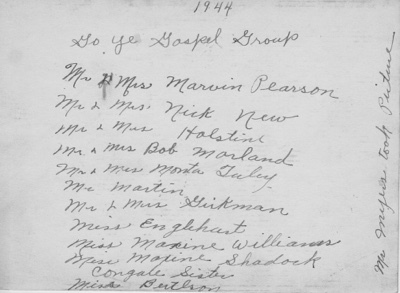 1944
Go Ye Gospel Group
Mr & Mrs Marvin Pearson
Mr & Mrs. Nick New
Mr & Mrs Holstine
Mr & Mrs Bob Morland
Mr & Mrs Monta Tuley
Mr Martin
Mr & Mrs Girkman
Miss Englehart
Miss Maxine Williams
Miss Maxine Shadock
Congate Sister
Miss Bertlson
Mr Inyess took Picture